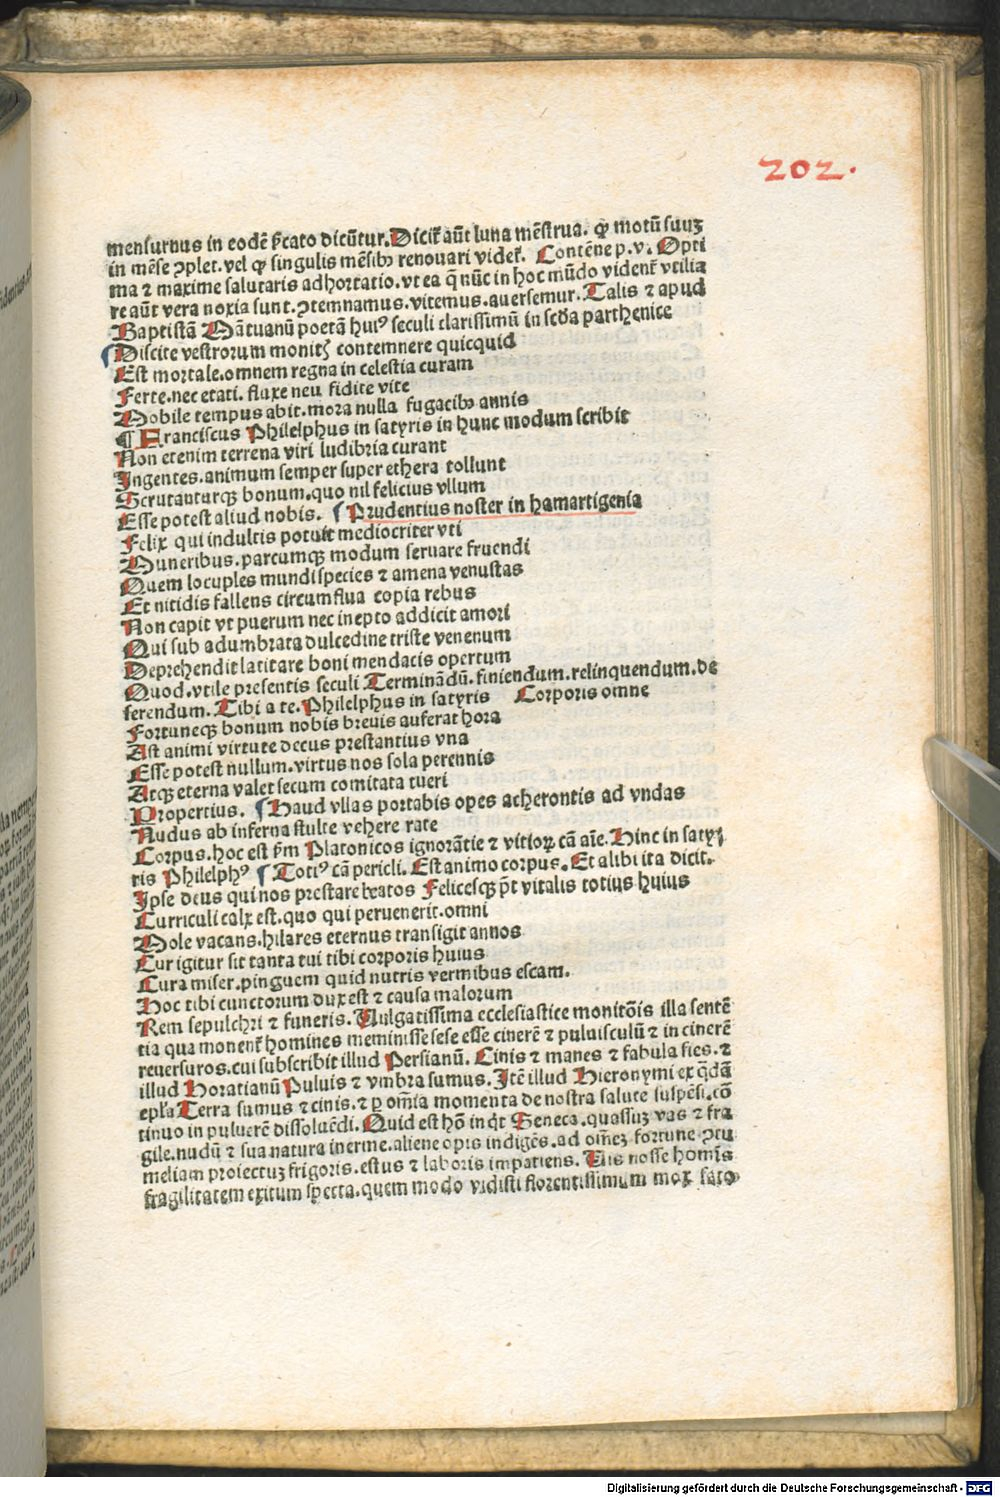 202.
mensurnus in eodē p̄cato dicūtur. Dicit᷑ aūt luna mēstrua. qꝫ motū suuꝫ
in mēse ꝯplet. vel qꝫ singulis mēsibꝰ renouari videt᷑. Contēne p. v. Opti
ma ⁊ maxime salutaris adhortatio. vt ea q̄ nūc in hoc mūdo vident᷑ vtilia
re aūt vera noxia sunt. ꝯtemnamus. vitemus. auersemur. Talis ⁊ apud
Baptistā Māntuanū poetā huiꝰ seculi clarissimū in scḋa parthenice
Discite vestrorum monitꝭ contemnere quicquid
Est mortale. omnem regna in celestia curam
Ferte. nec etati. fluxe neu fidite vite
Mobile tempus abit. mora nulla fugacibꝰ annis
¶ Franciscus Philelphus in satyris in hunc modum scribit
Non etenim terrena viri ludibria curant
Ingentes. animum semper super ethera tollunt
Scrutanturqꝫ bonum. quo nil felicius vllum
Esse potest aliud nobis. ¶ Prudentius noster in hamartigenia
Felix qui indultis potuit mediocriter vti
Muneribus. parcumqꝫ modum seruare fruendi
Quem locuples mundi species ⁊ amena venustas
Et nitidis fallens circumflua copia rebus
Non capit vt puerum nec inepto addicit amori
Qui sub adumbrata dulcedine triste venenum
Deprehendit latitare boni mendacis opertum
Quod. vtile presentis seculi Terminādū. finiendum. relinquendum. de
ferendum. Tibi a te. Philelphus in satyris Corporis omne
Fortuneqꝫ bonum nobis breuis auferat hora
Ast animi virtute decus prestantius vna
Esse potest nullum. virtus nos sola perennis
Atqꝫ eterna valet secum comitata tueri
Propertius. ¶ Haud vllas portabis opes acherontis ad vndas
Nudus ab inferna stulte vehere rate
Corpus. hoc est p̄m Platonicos ignorātie ⁊ vitioꝝ cā aīe. Hinc in saty
ris Philelphꝰ ¶ Totiꝰ cā pericli. Est animo corpus. Et alibi ita dicit.
Ipse deus qui nos prestare beatos Felicesqꝫ p̄t vitalis totius huius
Curriculi calx est. quo qui peruenerit. omni
Mole vacans. hilares eternus transigit annos
Cur igitur sit tanta tui tibi corporis huius
Cura miser. pinguem quid nutris vermibus escam.
Hoc tibi cunctorum dux est ⁊ causa malorum
Rem sepulchri ⁊ funeris. Vulgatissima ecclesiastice monitōis illa sentē
tia qua monent᷑ homines meminisse sese esse cinerē ⁊ puluisculū ⁊ in cinerē
reuersuros. cui subscribit illud Persianū. Cinis ⁊ manes ⁊ fabula fies. ⁊
illud Horatianū Puluis ⁊ vmbra sumus. Itē illud Hieronymi ex q̄dā
epl̄a Terra sumus ⁊ cinis. ⁊ ꝑ om̄ia momenta de nostra salute suspēsi. cō
tinuo in puluerē dissoluēdi. Quid est hō inq̄t Seneca. quassuꝫ vas ⁊ fra
gile. nudū ⁊ sua natura inerme. aliene opis indigēs. ad om̄eꝫ fortune ꝯtu
meliam proiectuꝫ frigoris. estus ⁊ laboris impatiens. Vis nosse homīs
fragilitatem exitum specta. quem modo vidisti florentissimum mox
Digitalisierung gefördert durch die Deutsche Forschungsgemeinschaft - DFG